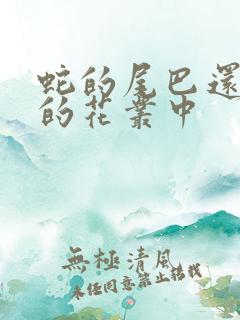 蛇的尾巴還
的花叢中
無極清風
未经同意禁止转载